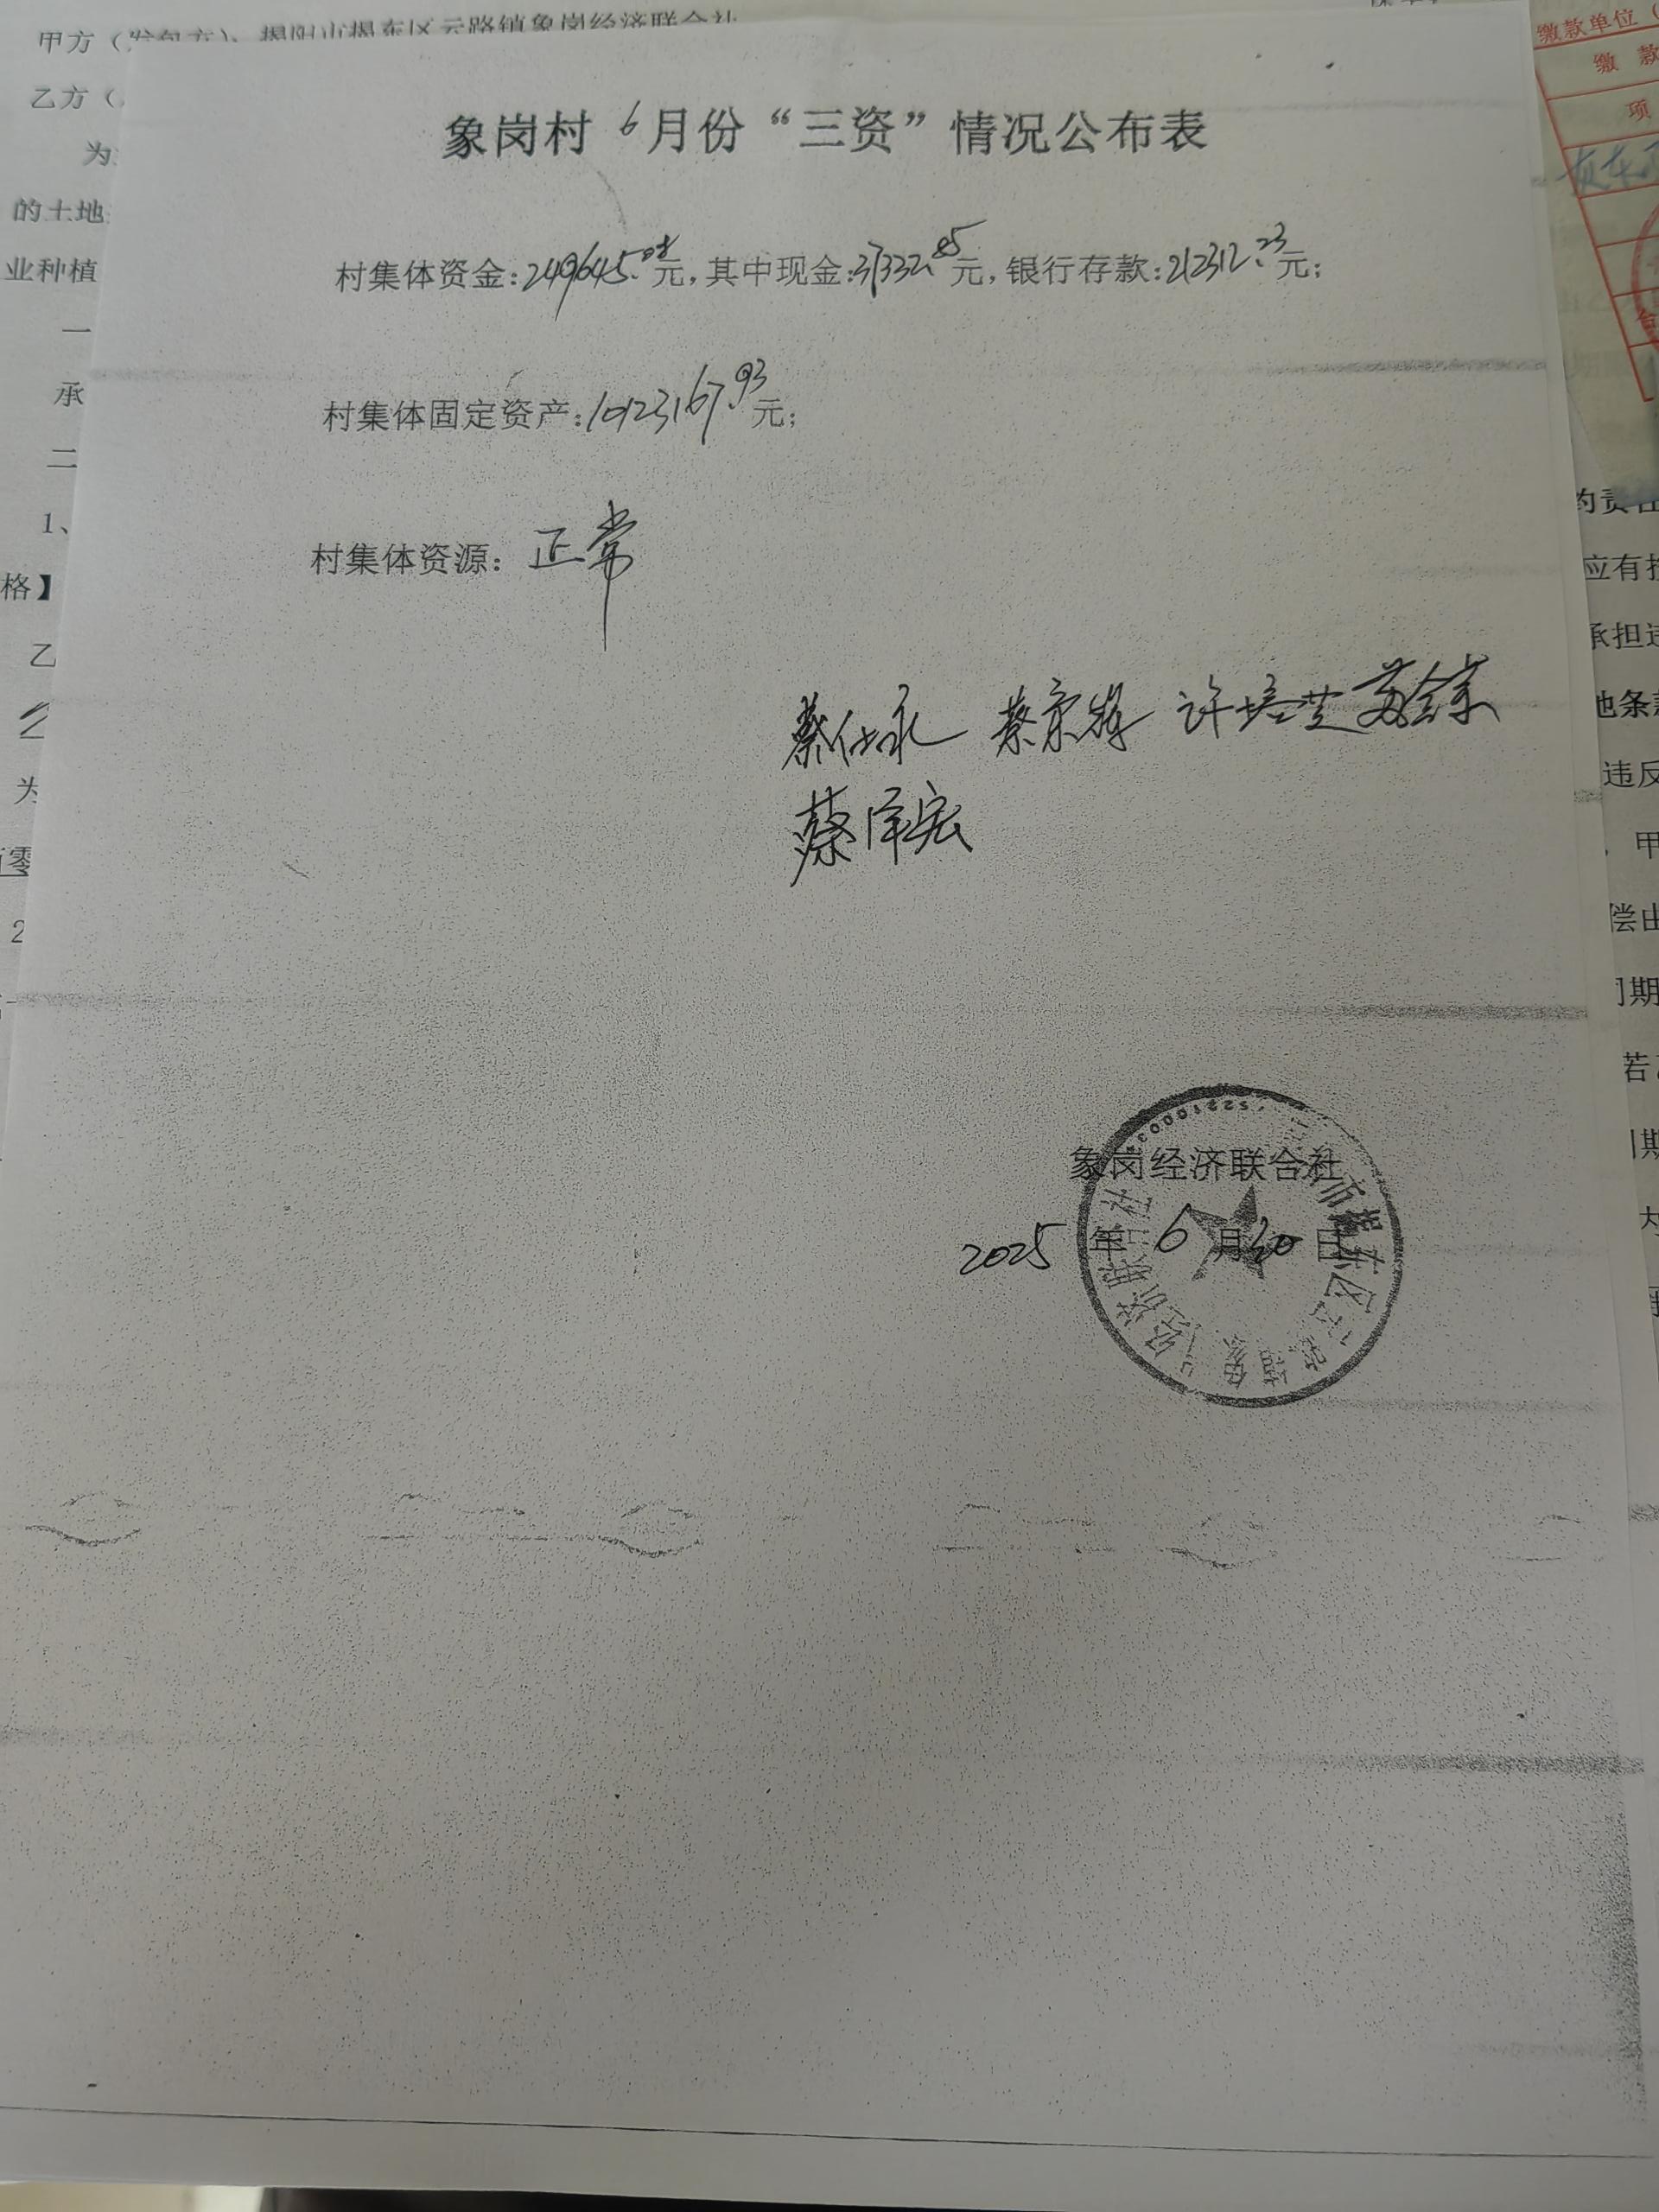 甲方（发包方）：揭阳市揭东区云路镇象岗经济联合社
乙方（
为
的土地
业种植
一
承
二
1、
格】
乙
乙
为
零
2
象岗村6月份“三资”情况公布表
村集体资金：249645.08元，其中现金：37332.85元，银行存款：212312.23元；
村集体固定资产：10123167.93元；
村集体资源：正常
蔡仕永 蔡宗辉 许培芝
蔡泽宏
象岗经济联合社
2025年6月30日
缴款单位（
缴款
项
约责任
应有
承担违
地条款
违反
，甲
偿由
期
若
期